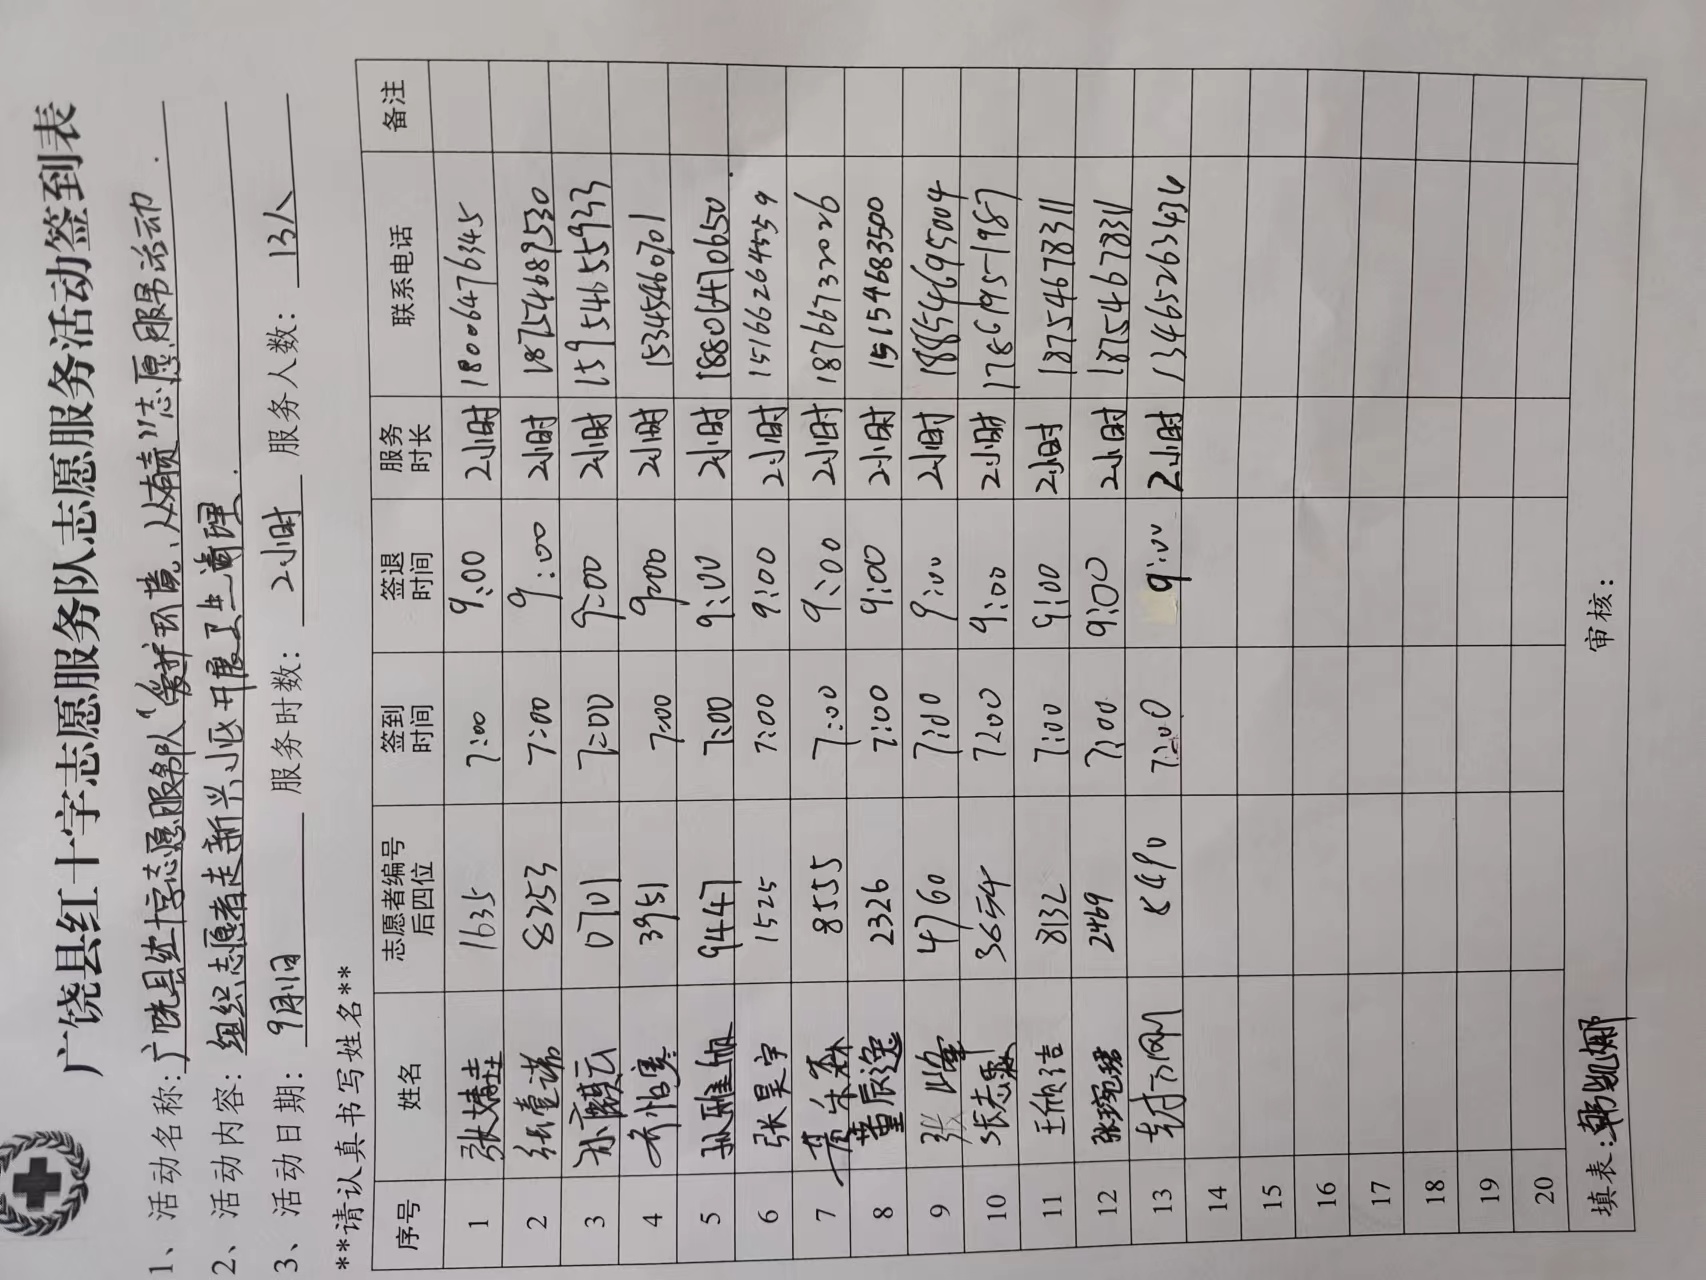 广饶县红十字志愿服务队志愿服务活动签到表
1、活动名称:广饶县红十字志愿服务队“爱护环境、人人有责”志愿服务活动.
2、活动内容:组织志愿者走新兴小区开展卫生清理.
3、活动日期: 9月1日 服务时数: 2小时 服务人数: 13人
**请认真书写姓名**
序号 姓名 志愿者编号后四位 签到时间 签退时间 服务时长 联系电话 备注
1 张婧垚 1635 7:00 9:00 2小时 18006476345
2 纸壹诺 8253 7:00 9:00 2小时 18754689530
3 孙颢云 0701 7:00 9:00 2小时 15954655933
4 3951 7:00 9:00 2小时 15345460701
5 孙雅細 9447 7:00 9:00 2小时 18806470650
6 张昊宇 1525 7:00 9:00 2小时 15166264559
7 8555 7:00 9:00 2小时 18766732026
8 董辰逸 2326 7:00 9:00 2小时 15154683500
9 张峰 4760 7:00 9:00 2小时 18854695004
10 张志泉 7:00 9:00 2小时 1786195-1987
11 王欣洁 8132 7:00 9:00 2小时 18754678311
12 张琬珺 2469 7:00 9:00 2小时 18754678311
13 7:00 9:00 2小时 13465263436
14
15
16
17
18
19
20
填表: 韩凯娜 审核: